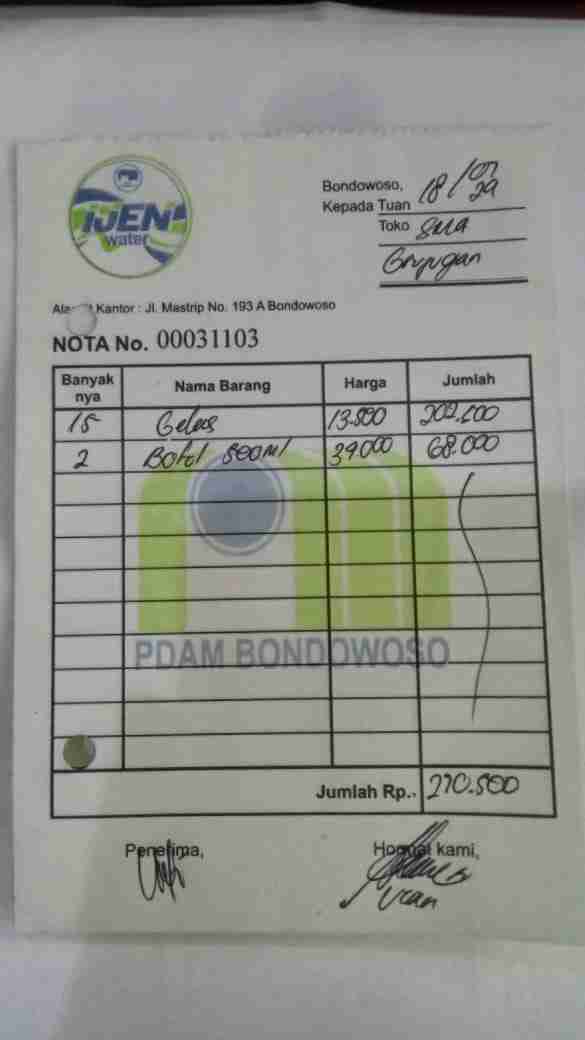 IJEN
water
Bondowoso, 18/07 29
Kepada Tuan
Toko SMA
Grujugan
Alamat Kantor : Jl. Mastrip No. 193 A Bondowoso
NOTA No. 00031103
Banyak nya Nama Barang Harga Jumlah
15 Gelas 13.500 202.500
2 Botol 500 Ml 34.000 68.000
PDAM BONDOWOSO
Jumlah Rp.. 270.500
Penerima, Hormat kami,